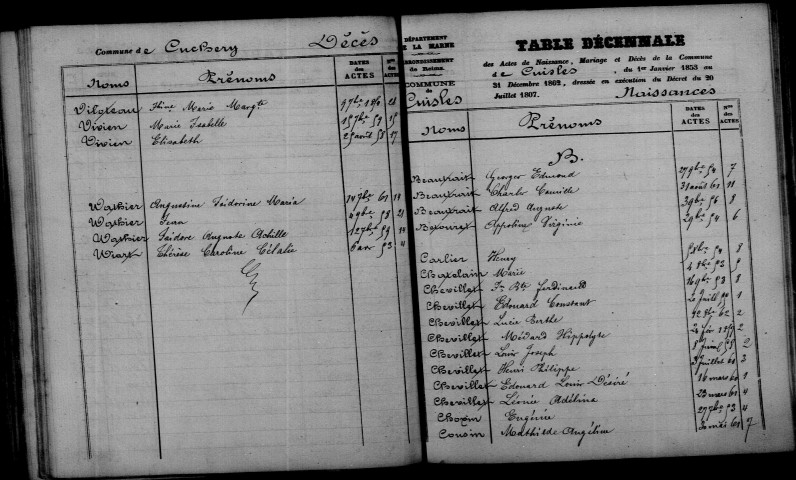 Commune de Cuchery Décès
Noms Prénoms DATES des ACTES Nos des ACTES
Marie Margte 28
Vivien Marie Isabelle 15
Vivien Elisabeth 25 août 58 17
Wathier Augustine Isidorine Maria 14 7bre 61 19
Wathier Jean 4 9bre 58 21
Wathier Isidore Auguste Achille 12 7bre 59 14
Wiart Thérèse Caroline Célalie 6 avr 53 4
DÉPARTEMENT
DE LA MARNE
ARRONDISSEMENT
de Reims.
COMMUNE
de
Cuisles
TABLE DÉCENNALE
des Actes de Naissance, Mariage et Décès de la Commune
de Cuisles, du 1er Janvier 1853 au
31 Décembre 1862, dressée en exécution du Décret du 20
Juillet 1807. Naissances
Noms Prénoms DATES des ACTES Nos des ACTES
B.
Beaufrait Georges Edmond 27 9bre 54 7
Beaufrait Charles Camille 31 août 61 11
Beaufrait Alfred Auguste 56 8
Appoline Virginie 54 6
Carlier Henry 54 8
Chatelain Marie 53 9
Chevillet Fs Bte Ferdinand 53 8
Chevillet Edouard Constant 1
Chevillet Lucie Berthe 62 2
Chevillet Médard Hippolyte 2
Chevillet Louis Joseph 58 2
Chevillet Henri Philippe juillet 60 3
Chevillet Edouard Louis Désiré 16 mars 60 1
Chevillet Léonie Adélina 23 mars 61 4
Eugénie 27 7bre 53 4
Cousin Mathilde Angéline 61 7